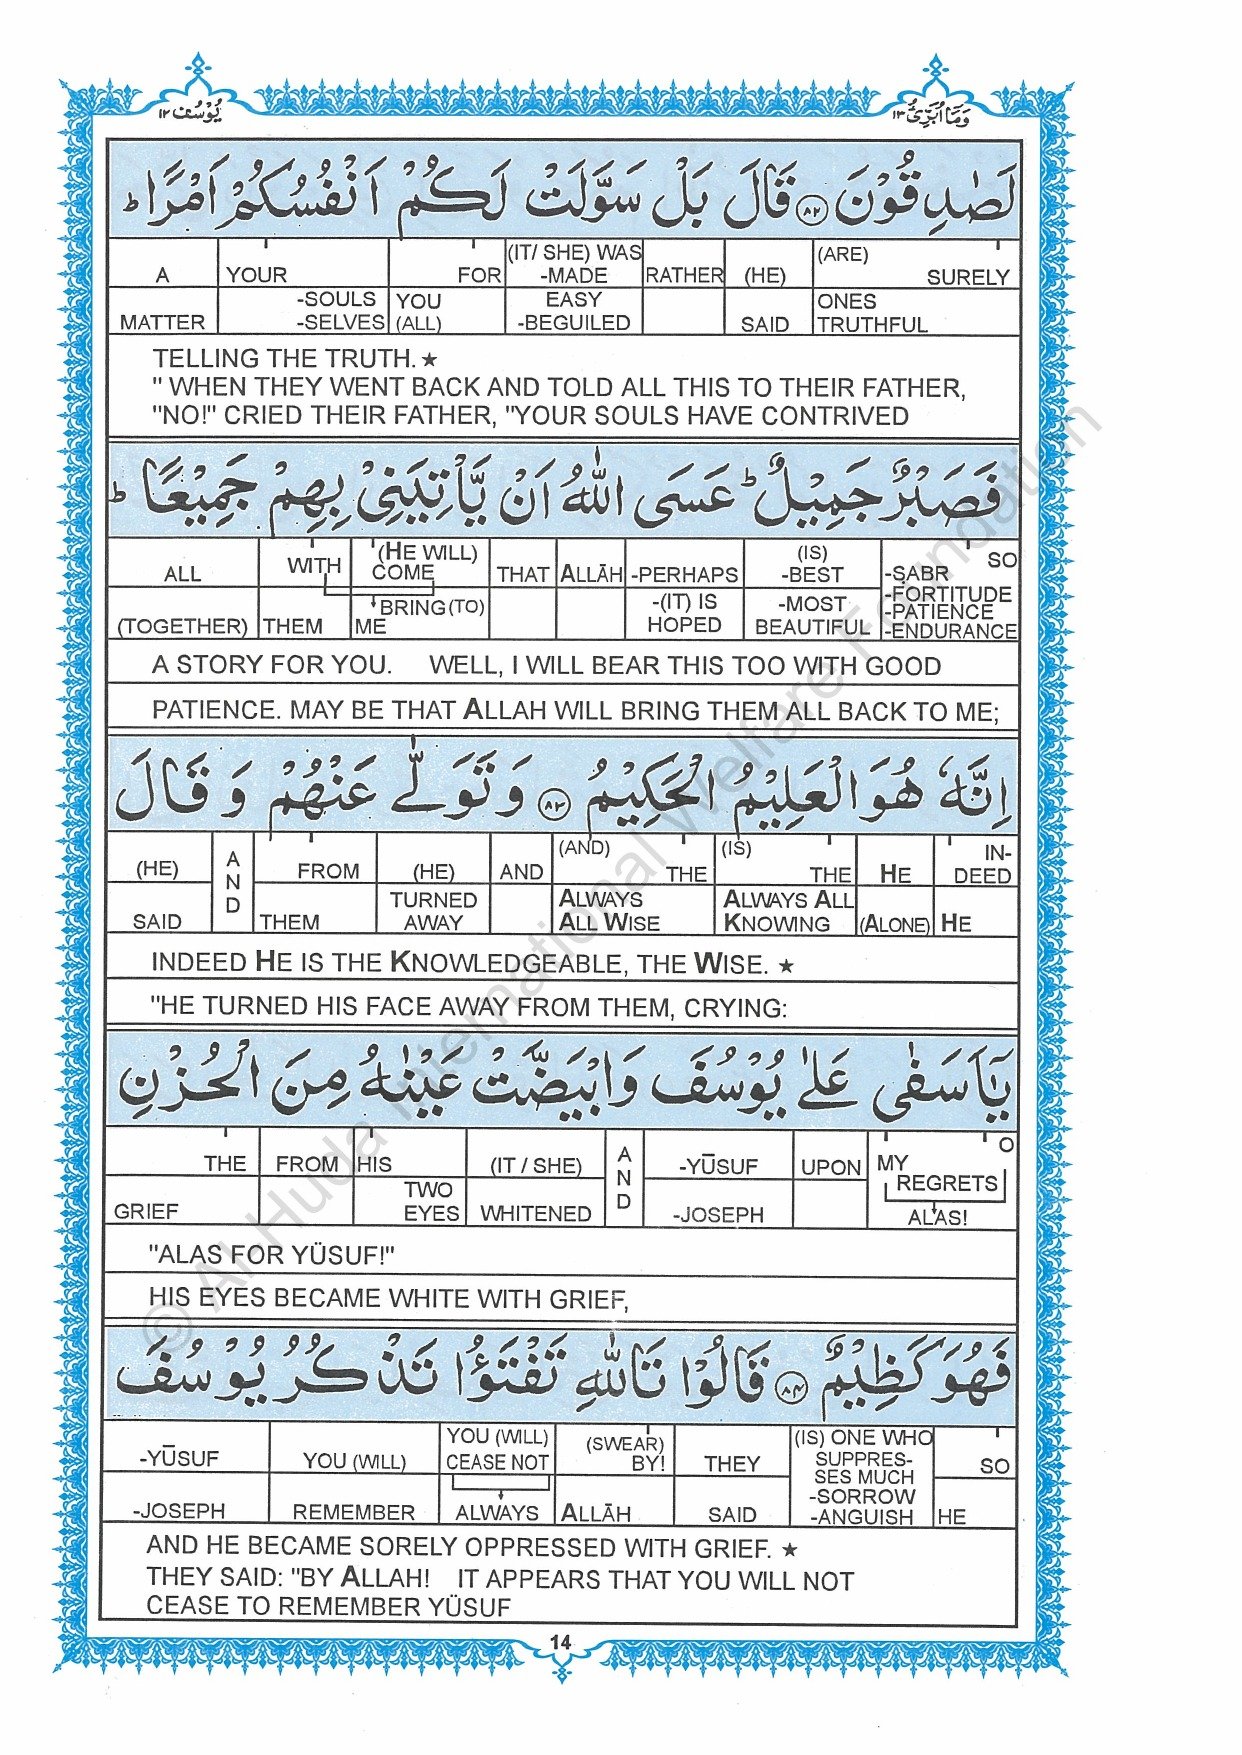 وَمَآ اُبَرِّئُ ١٣
يُوْسُف ١٢
لَصٰدِقُوْنَ ﴿٨٢﴾ قَالَ بَلْ سَوَّلَتْ لَكُمْ اَنْفُسُكُمْ اَمْرًا ؕ
A YOUR FOR (IT/ SHE) WAS -MADE RATHER (HE) (ARE) SURELY
MATTER -SOULS -SELVES YOU (ALL) EASY -BEGUILED SAID ONES TRUTHFUL
TELLING THE TRUTH. ★
" WHEN THEY WENT BACK AND TOLD ALL THIS TO THEIR FATHER,
"NO!" CRIED THEIR FATHER, "YOUR SOULS HAVE CONTRIVED
فَصَبْرٌ جَمِيْلٌ ؕ عَسَى اللّٰهُ اَنْ يَّاْتِيَنِيْ بِهِمْ جَمِيْعًا ؕ
ALL WITH (HE WILL) COME THAT ALLĀH -PERHAPS (IS) -BEST SO
(TOGETHER) THEM BRING (TO) ME -(IT) IS HOPED -MOST BEAUTIFUL -SABR -FORTITUDE -PATIENCE -ENDURANCE
A STORY FOR YOU. WELL, I WILL BEAR THIS TOO WITH GOOD
PATIENCE. MAY BE THAT ALLAH WILL BRING THEM ALL BACK TO ME;
اِنَّهٗ هُوَ الْعَلِيْمُ الْحَكِيْمُ ﴿٨٣﴾ وَتَوَلّٰى عَنْهُمْ وَقَالَ
(HE) AND FROM (HE) AND (AND) THE (IS) THE HE IN-DEED
SAID THEM TURNED AWAY ALWAYS ALL WISE ALWAYS ALL KNOWING (ALONE) HE
INDEED HE IS THE KNOWLEDGEABLE, THE WISE. ★
"HE TURNED HIS FACE AWAY FROM THEM, CRYING:
يٰۤاَسَفٰى عَلٰى يُوْسُفَ وَابْيَضَّتْ عَيْنٰهُ مِنَ الْحُزْنِ
THE FROM HIS (IT / SHE) AND -YŪSUF UPON MY REGRETS O
GRIEF TWO EYES WHITENED -JOSEPH ALAS!
"ALAS FOR YÜSUF!"
HIS EYES BECAME WHITE WITH GRIEF,
فَهُوَ كَظِيْمٌ ﴿٨٤﴾ قَالُوْا تَاللّٰهِ تَفْتَؤُا تَذْكُرُ يُوْسُفَ
-YŪSUF YOU (WILL) YOU (WILL) CEASE NOT (SWEAR) BY! THEY (IS) ONE WHO SUPPRES-SES MUCH SO
-JOSEPH REMEMBER ALWAYS ALLĀH SAID -SORROW -ANGUISH HE
AND HE BECAME SORELY OPPRESSED WITH GRIEF. ★
THEY SAID: "BY ALLAH! IT APPEARS THAT YOU WILL NOT
CEASE TO REMEMBER YÜSUF
14
© Al-Huda International Welfare Foundation